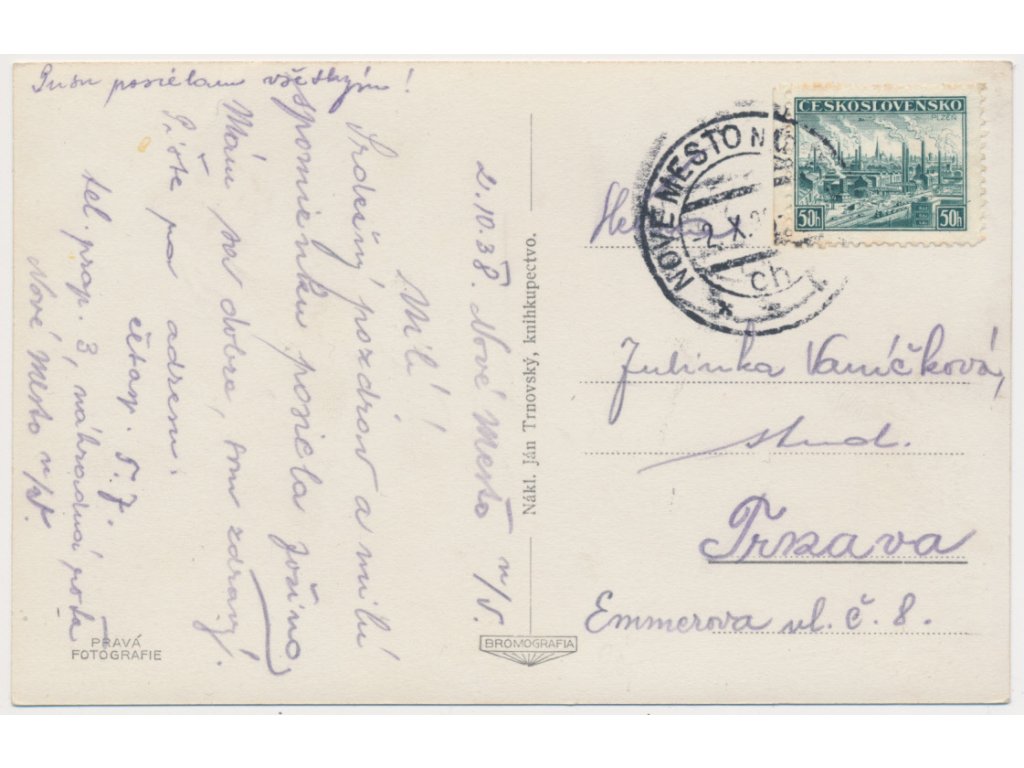 2.10.38. Nové Mesto n/V.
Milí!
Srdečný pozdrav a milú
spomienku posiela Jožino,
Mám sa dobre, som zdravý.
Píšte na adresu:
čatár. 5.7.
tel. prap. 3, náhradná rota
Nové Mesto n/V.
Pusu posielam všetkým!
PRAVÁ
FOTOGRAFIE
Nákl. Ján Trnovský, kníhkupectvo.
BROMOGRAFIA
NOVÉ MESTO N
-2.X.
ch
ČESKOSLOVENSKO
PLZEŇ
50h 50h
Julinka Vaníčková,
stud.
Trnava
Emmerova ul. č. 8.